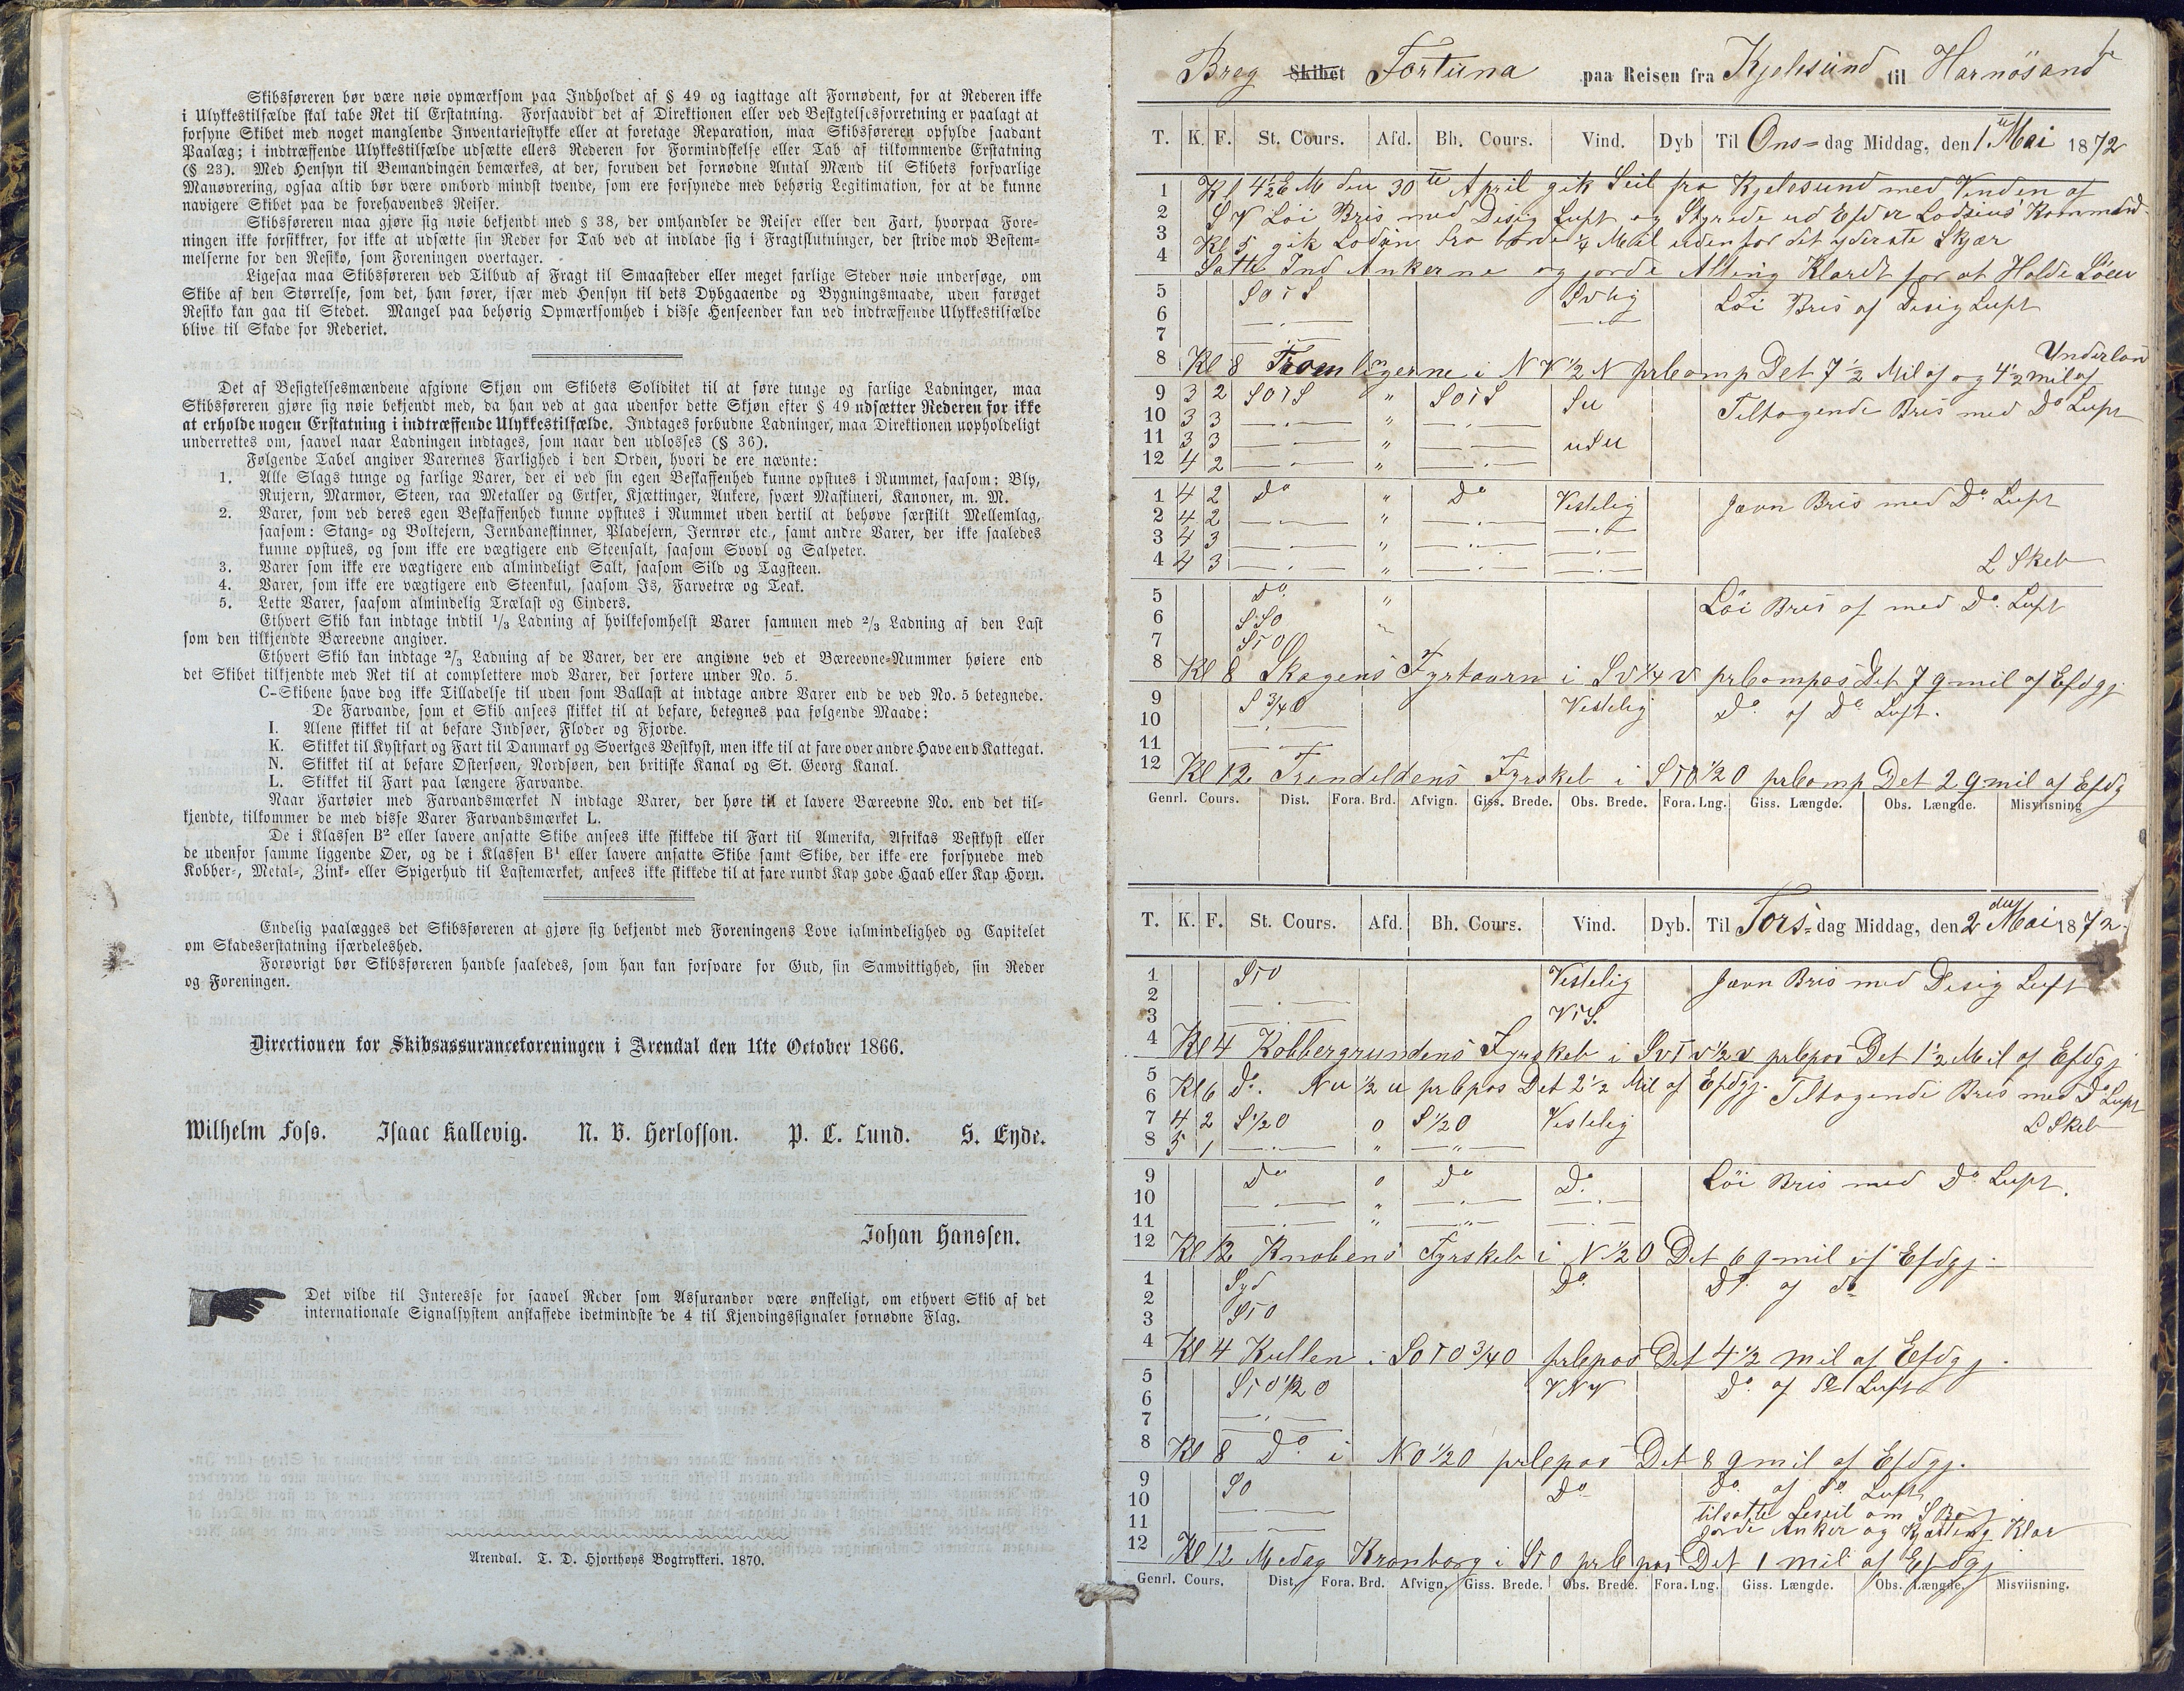 Skibsføreren bør være nøie opmærksom paa Indholdet af § 49 og iagttage alt Fornødent, for at Rederen ikke
i Ulykkestilfælde skal tabe Ret til Erstatning. Forsaavidt det af Direktionen eller ved Besigtelsesforretning er paalagt at
forsyne Skibet med noget manglende Inventariestykke eller at foretage Reparation, maa Skibsføreren opfylde saadant
Paalæg; i indtræffende Ulykkestilfælde udsætte ellers Rederen for Formindskelse eller Tab af tilkommende Erstatning
(§ 23). Med Hensyn til Bemandingen bemærkes, at der, foruden det fornødne Antal Mænd til Skibets forsvarlige
Manøvrering, ogsaa altid bør være ombord mindst tvende, som ere forsynede med behørig Legitimation, for at de kunne
navigere Skibet paa de forehavendes Reiser.
Skibsføreren maa gjøre sig nøie bekjendt med § 38, der omhandler de Reiser eller den Fart, hvorpaa Fore-
ningen ikke forsikkrer, for ikke at udsætte sin Reder for Tab ved at indlade sig i Fragtslutninger, der stride mod Bestem-
melserne for den Resiko, som Foreningen overtager.
Ligesaa maa Skibsføreren ved Tilbud af Fragt til Smaasteder eller meget farlige Steder nøie undersøge, om
Skibe af den Størrelse, som det, han fører, især med Hensyn til dets Dybgaaende og Bygningsmaade, uden farøget
Resiko kan gaa til Stedet. Mangel paa behørig Opmærksomhed i disse Henseender kan ved indtræffende Ulykkestilfælde
blive til Skade for Rederiet.
Det af Besigtelsesmændene afgivne Skjøn om Skibets Soliditet til at føre tunge og farlige Ladninger, maa
Skibsføreren gjøre sig nøie bekjendt med, da han ved at gaa udenfor dette Skjøn efter § 49 udsætter Rederen for ikke
at erholde nogen Erstatning i indtræffende Ulykkestilfælde. Indtages forbudne Ladninger, maa Direktionen uopholdeligt
underrettes om, saavel naar Ladningen indtages, som naar den udlosses (§ 36).
Følgende Tabel angiver Varernes Farlighed i den Orden, hvori de ere nævnte:
1. Alle Slags tunge og farlige Varer, der ei ved sin egen Beskaffenhed kunne opstues i Rummet, saasom: Bly,
Rujern, Marmor, Steen, raa Metaller og Ertser, Kjættinger, Ankere, svært Maskineri, Kanoner, m. M.
2. Varer, som ved deres egen Beskaffenhed kunne opstues i Rummet uden dertil at behøve særskilt Mellemlag,
saasom: Stang- og Boltejern, Jernbaneskinner, Pladejern, Jernrør etc., samt andre Varer, der ikke saaledes
kunne opstues, og som ikke ere vægtigere end Steensalt, saasom Svovl og Salpeter.
3. Varer som ikke ere vægtigere end almindeligt Salt, saasom Sild og Tagsteen.
4. Varer, som ikke ere vægtigere end Steenkul, saasom Is, Farvetræ og Teak.
5. Lette Varer, saasom almindelig Trælast og Cinders.
Ethvert Skib kan indtage indtil 1/3 Ladning af hvilkesomhelst Varer sammen med 2/3 Ladning af den Last
som den tilkjendte Bæreevne angiver.
Ethvert Skib kan indtage 2/3 Ladning af de Varer, der ere angivne ved et Bæreevne-Nummer høiere end
det Skibet tilkjendte med Ret til at complettere mod Varer, der sortere under No. 5.
C-Skibene have dog ikke Tilladelse til uden som Ballast at indtage andre Varer end de ved No. 5 betegnede.
De Farvande, som et Skib ansees skikket til at befare, betegnes paa følgende Maade:
I. Alene skikket til at befare Indsøer, Floder og Fjorde.
K. Skikket til Kystfart og Fart til Danmark og Sveriges Vestkyst, men ikke til at fare over andre Have end Kattegat.
N. Skikket til at befare Østersøen, Nordsøen, den britiske Kanal og St. Georg Kanal.
L. Skikket til Fart paa længere Farvande.
Naar Fartøier med Farvandsmærket N indtage Varer, der høre til et lavere Bæreevne No. end det til-
kjendte, tilkommer de med disse Varer Farvandsmærket L.
De i Klassen B2 eller lavere ansatte Skibe ansees ikke skikkede til Fart til Amerika, Afrikas Vestkyst eller
de udenfor samme liggende Øer, og de i Klassen B1 eller lavere ansatte Skibe samt Skibe, der ikke ere forsynede med
Kobber-, Metal-, Zink- eller Spigerhud til Lastemærket, ansees ikke skikkede til at fare rundt Kap gode Haab eller Kap Horn.
Endelig paalægges det Skibsføreren at gjøre sig bekjendt med Foreningens Love ialmindelighed og Capitelet
om Skadeserstatning isærdeleshed.
Forøvrigt bør Skibsføreren handle saaledes, som han kan forsvare for Gud, sin Samvittighed, sin Reder
og Foreningen.
Directionen for Skibsassuranceforeningen i Arendal den 1ste October 1866.
Wilhelm Foss. Isaac Kallevig. N. B. Herlofson. P. C. Lund. S. Eyde.
Johan Hanssen.
Det vilde til Interesse for saavel Reder som Assurandør være ønskeligt, om ethvert Skib af det
internationale Signalsystem anskaffede idetmindste de 4 til Kjendingssignaler fornødne Flag.
Arendal. T. D. Hjorthøys Bogtrykkeri. 1870.
Breg Skibet Fortuna paa Reisen fra Kjelesund til Harnösand
T. K. F. St. Cours. Afd. Bh. Cours. Vind. Dyb Til Ons=dag Middag, den 1 Mai 1872
1 Kl 4½ E M den 30te April gik Seil fra Kjelesund med Vinden af
2 S V Löi Bris med Disig Luft og Styrede ud Efter Lodsens Kommand
3 Kl 5 gik Lodsen fra borde ¼ Mil udenfor det yderste Skjær
4 Satte Ind Ankerne og jorde Alting Klardt for at Holde Söen
5 SOtS Svlig Löi Bris af Disig Luft
6
7
Underland
8 Kl 8 Tromlingerne i N V ½ N prcomp Det 7½ Mil af og 4½ mil af
9 3 2 SOtS " SOtS Sv Tiltagende Bris med Do Luft
10 3 3 "
11 3 3 " vSv
12 4 2 "
1 4 2 Do " Do Vestelig Jævn Bris med Do Luft
2 4 2 "
3 4 3 "
4 4 3 " L Skeb
5 Do " Löi Bris af med Do Luft
6 SSO
7 StO
8 Kl 8 Skagens Fyrtaarn i Sv ¼ v prcompas Det 7 qmil af Efdgj
9 S ¾ O Vestelig Do af Do Luft.
10
11
12 Kl 12 Trindeldens Fyrskeb i StO ½ O prcomp Det 2 qmil af Efdg
Genrl. Cours. Dist. Fora. Brd. Afvign. Giss. Brede. Obs. Brede. Fora. Lng. Giss. Længde. Obs. Længde. Misviisning
T. K. F. St. Cours. Afd. Bh. Cours. Vind. Dyb. Til Tors=dag Middag, den 2den Mai 1872.
1 StO Vestelig Jævn Bris med Disig Luft
2
3 VtS.
4 Kl 4 Kobbergrundens Fyrskeb i Svtv ½ v prcpos Det 1½ Mil af Efdgj
5
6 Kl 6 Do. Nv ½ v prcpas Det 2½ Mil af Efdgj. Tiltagende Bris med Do Luft
7 4 2 S ½ O 0 S ½ O Vestelig L Skeb
8 5 1 "
9 Do 0 Do Do. Löi Bris med Do Luft.
10 "
11 "
12 Kl 12 Knobens Fyrskeb i N ½ O Det 6 qmil af Efdgj.
1 Syd Do. Do. af do
2
3 StO
4 Kl 4 Kullen i SOtO ¾ O prcpas Det 4½ mil af Efdgj.
5 StO ½ O VNV Do. af Do Luft
6
7
8 Kl 8 Do. i NO ½ O prcpas Det 8 qmil af Efdgj.
9 SO Do Do. af Do Luft
10 tilsatte Leseil om SB
11 jorde Anker og Kjætting Klar
12 Kl 12 Medag Kronborg i StO prcpas Det 1 mil af Efdgj
Genrl. Cours. Dist. Fora. Brd. Afvign. Giss. Brede. Obs. Brede. Fora. Lng. Giss. Længde. Obs. Længde. Misviisning.